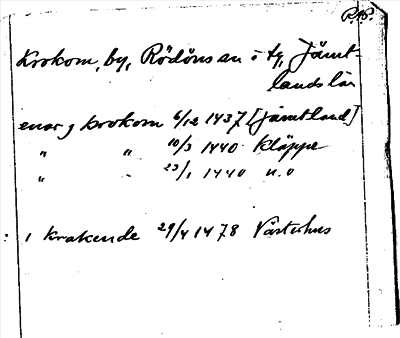 P.Np.
Krokom, by, Rödöns sn o tg, Jämt-
lands län
enar j krokom 6/12 1437 [Jämtland]
" " 10/3 1440 Kläppe
" - 23/1 1440 u.o
: i krakende 29/4 1478 Västerhus